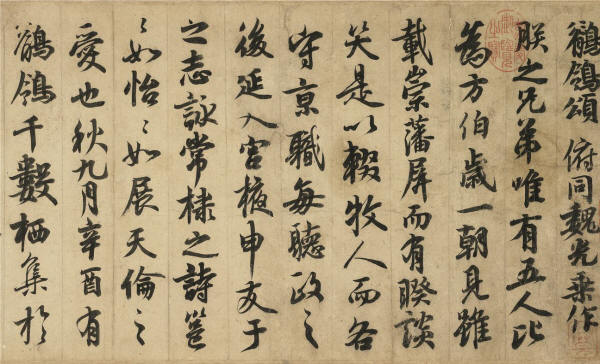 鶺鴒頌 俯同魏光乗作
朕之兄弟唯有五人比
為方伯歳一朝見雖
載崇藩屏而有睽談
笑是以輟牧人而各
守京職每聽政之
後延入宮掖申友于
之志詠常棣之詩邕
邕如怡怡如展天倫之
愛也秋九月辛酉有
鶺鴒千數栖集於